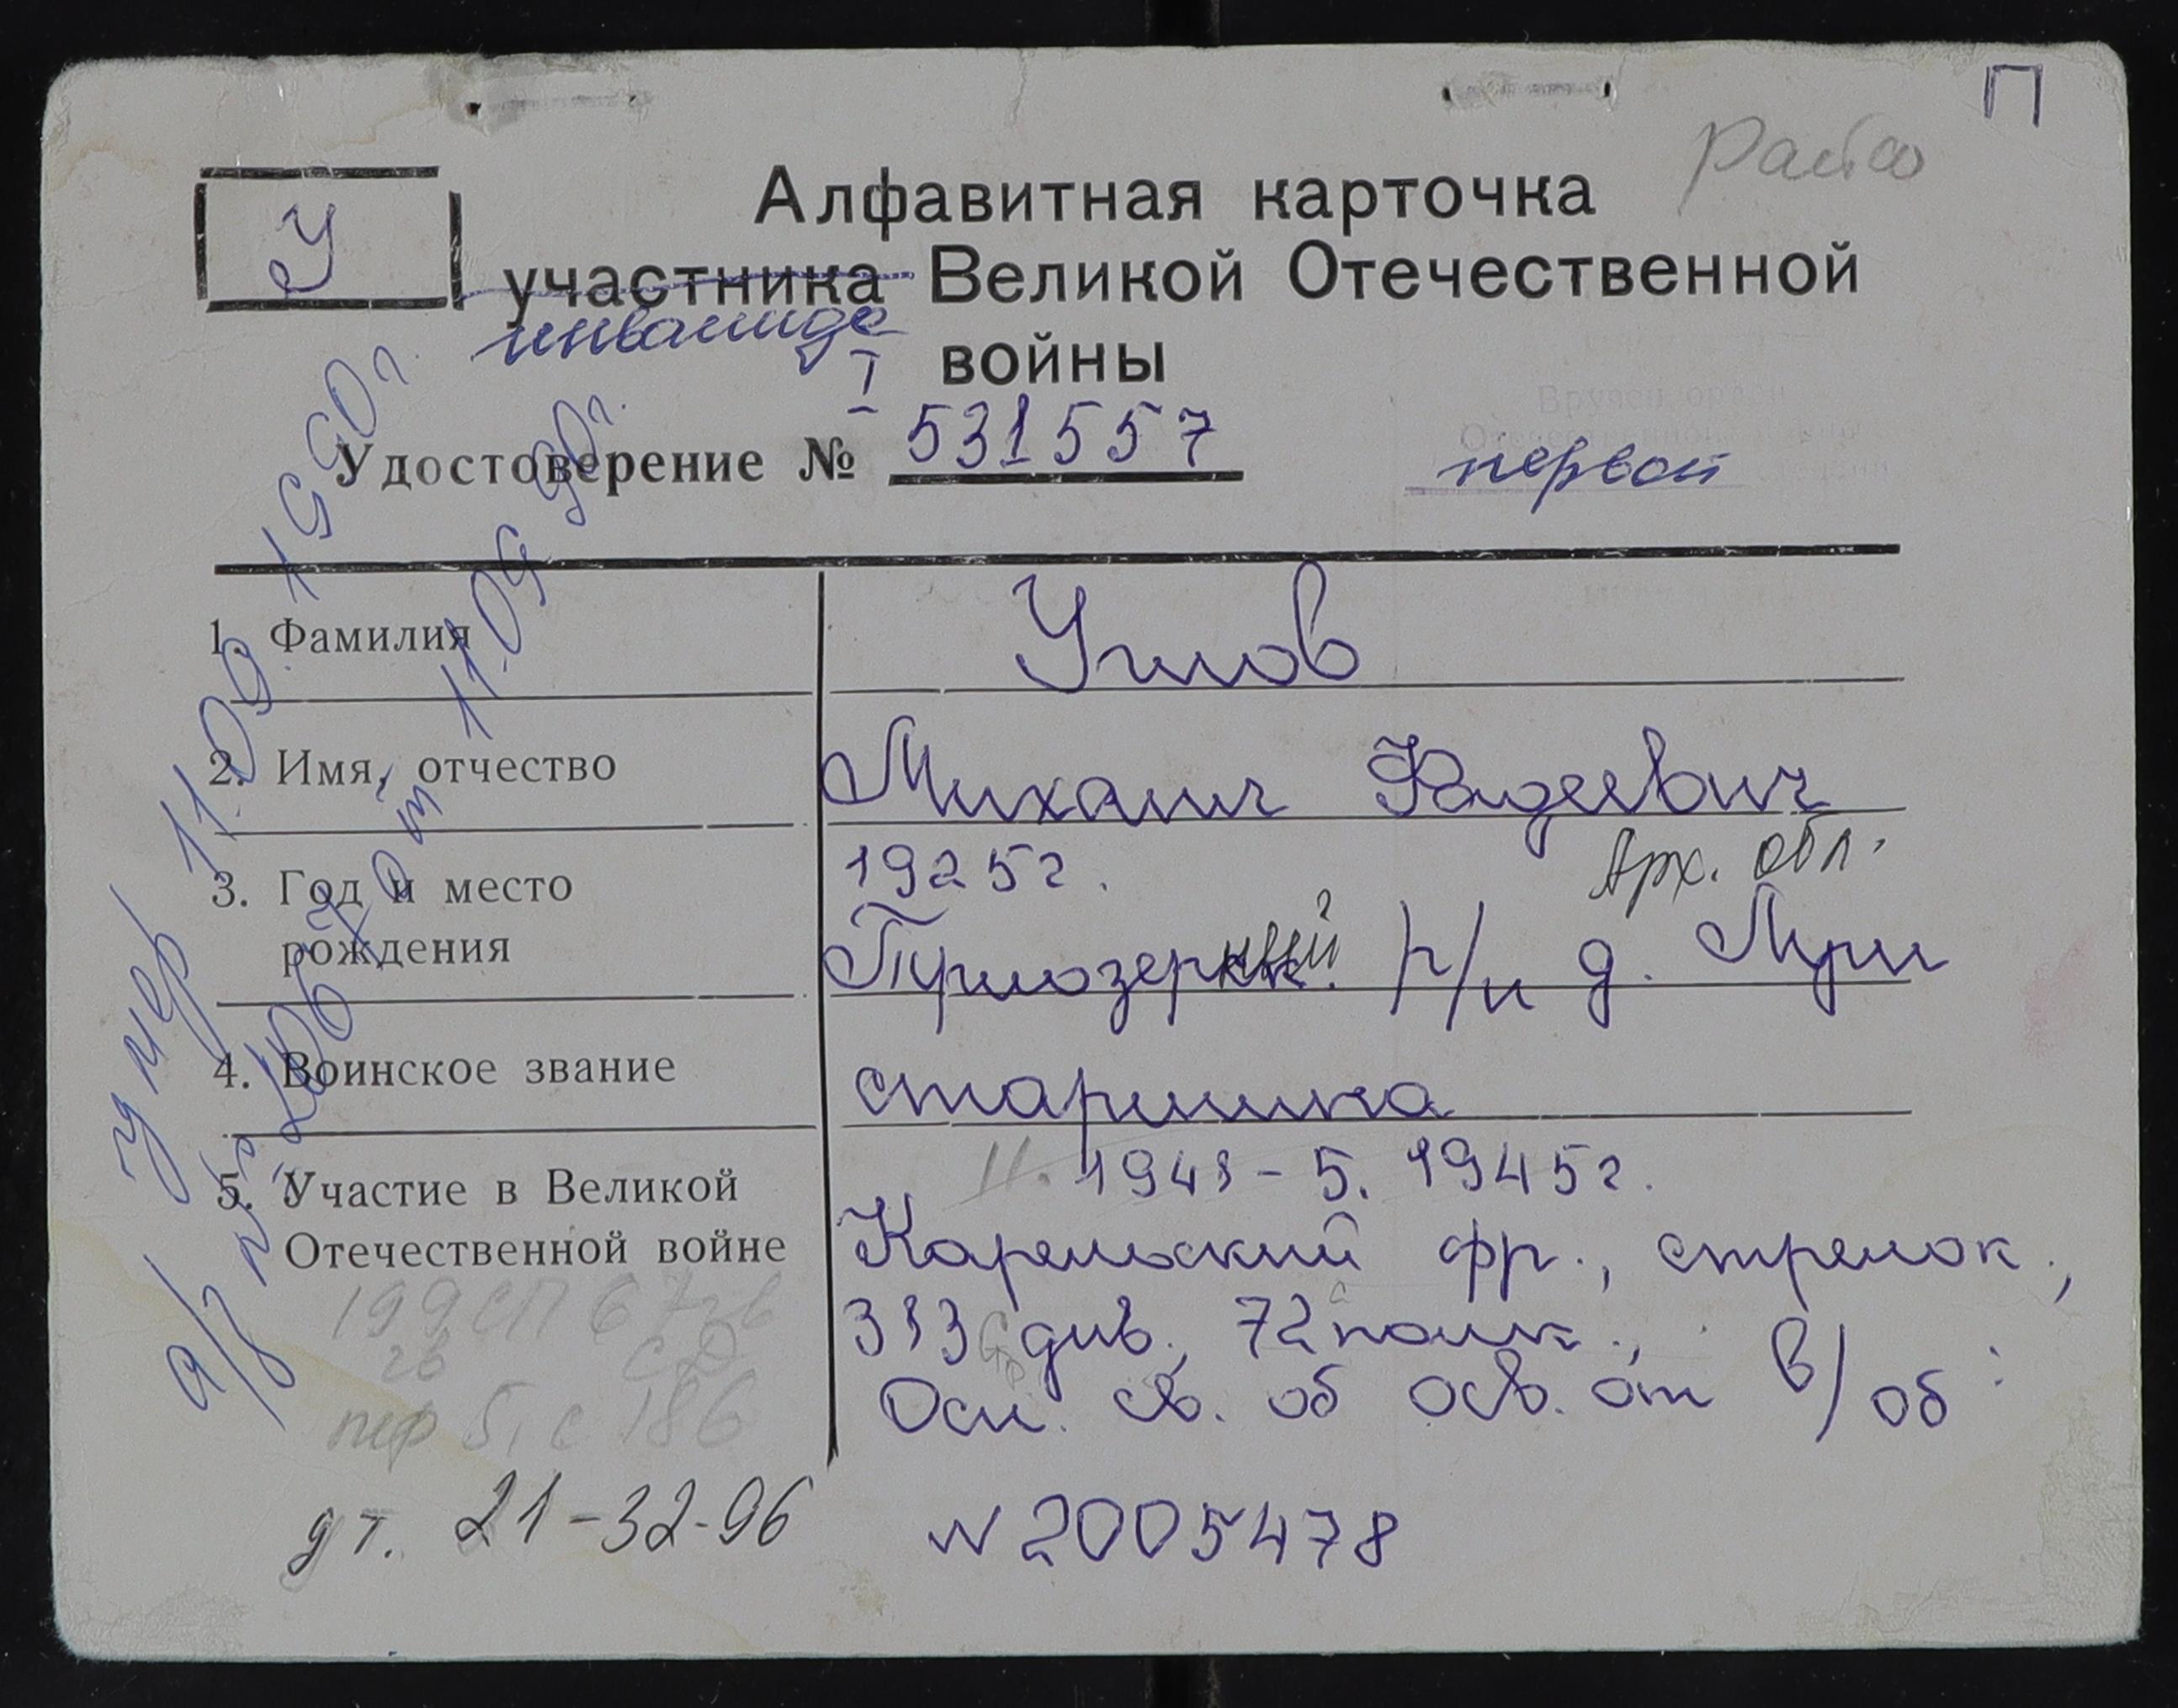 П
У
Алфавитная карточка
участника Великой Отечественной
инвалида
войны
I
Удостоверение № 531557
первой
1. Фамилия
Углов
2. Имя, отчество
Михаил Фадеевич
3. Год и место
рождения
1925г.
Арх. обл.
р/н д.
4. Воинское звание
старшина
5. Участие в Великой
Отечественной войне
11. 1943 - 5. 1945г.
Карельский фр., стрелок.,
313 див., 72 полк.,
Осн. св. об осв. от в/об
199 СП 67
гв СД
5, с 186
дт. 21-32-96
N 2005478
умер 11.09. 1990г.
от 11.09 90г.